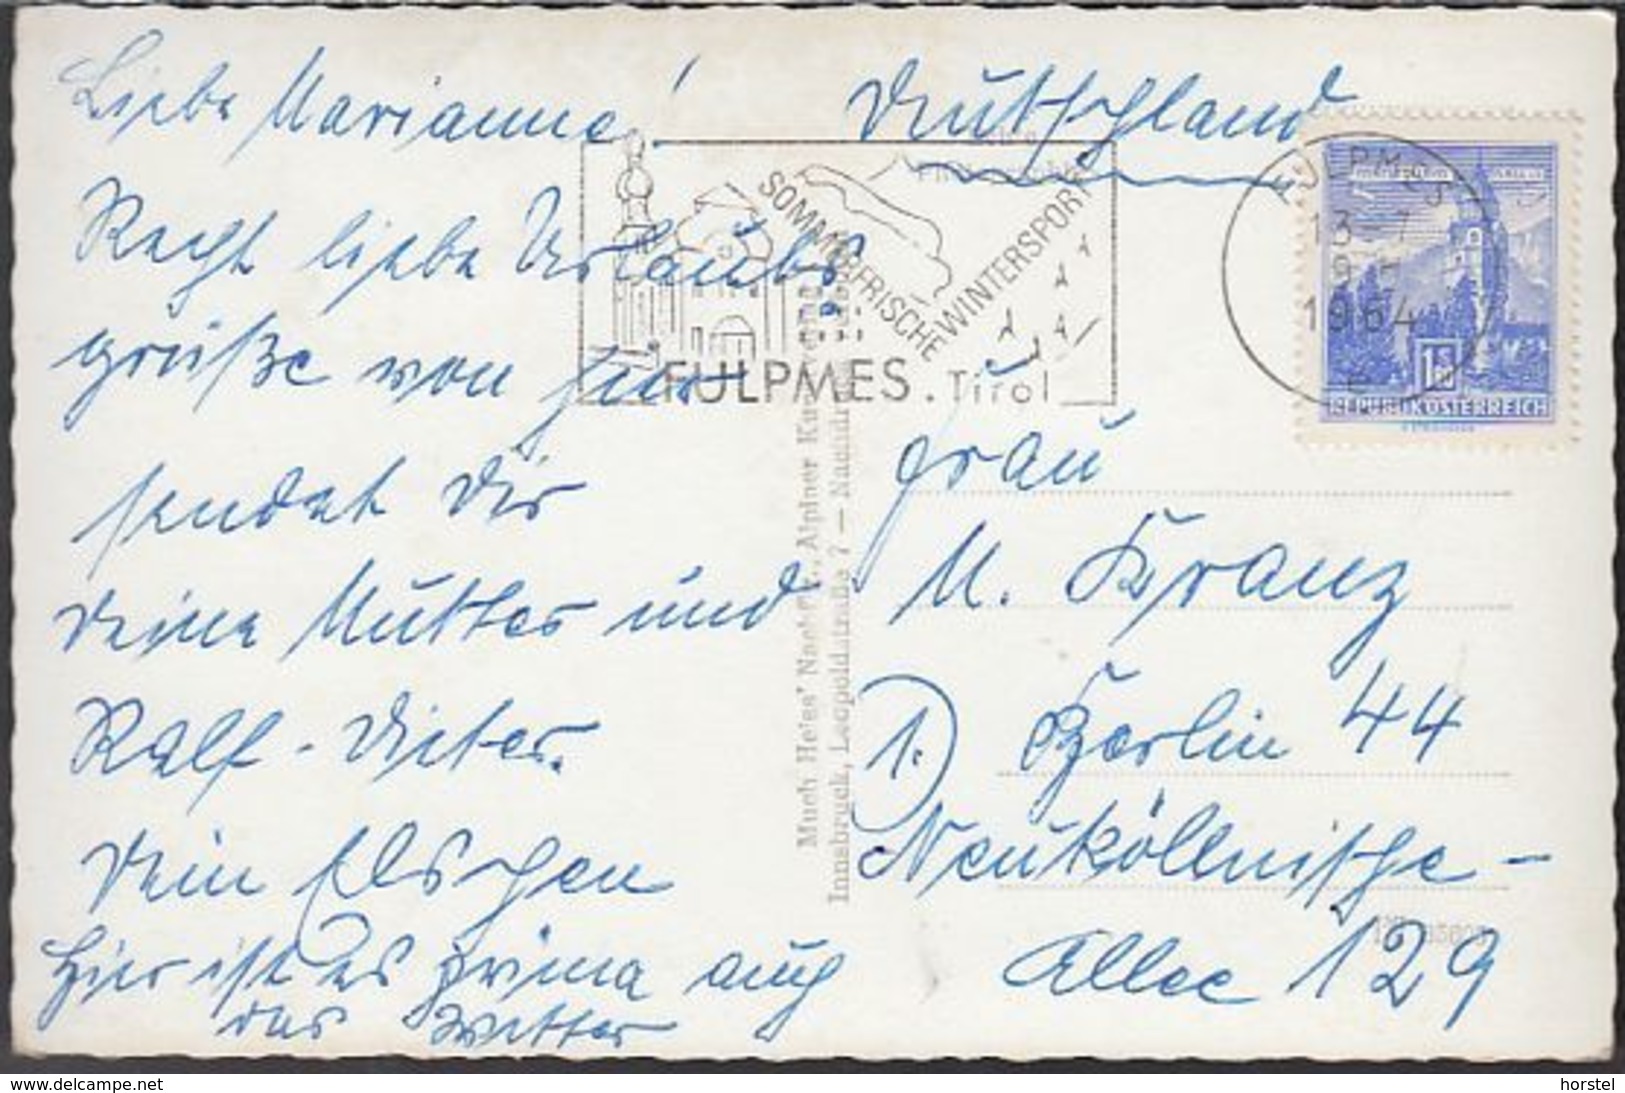 Liebe Marianne!
Recht liebe Urlaubs
grüße von hier
sendet Dir
Deine Mutter und
Ralf-Dieter.
Dein Elschen
Hier ist es prima auch
das Wetter
Deutschland
SOMMERFRISCHE
WINTERSPORT
FULPMES.Tirol
FULPMES
13 7
1964
REPUBLIK ÖSTERREICH
Much Heiss' Nachf., Alpiner
Innsbruck, Leopoldstraße 7 —
Frau
M. Kranz
1.) Berlin 44
Neuköllnische-
Allee 129
delcampe.net
horstel